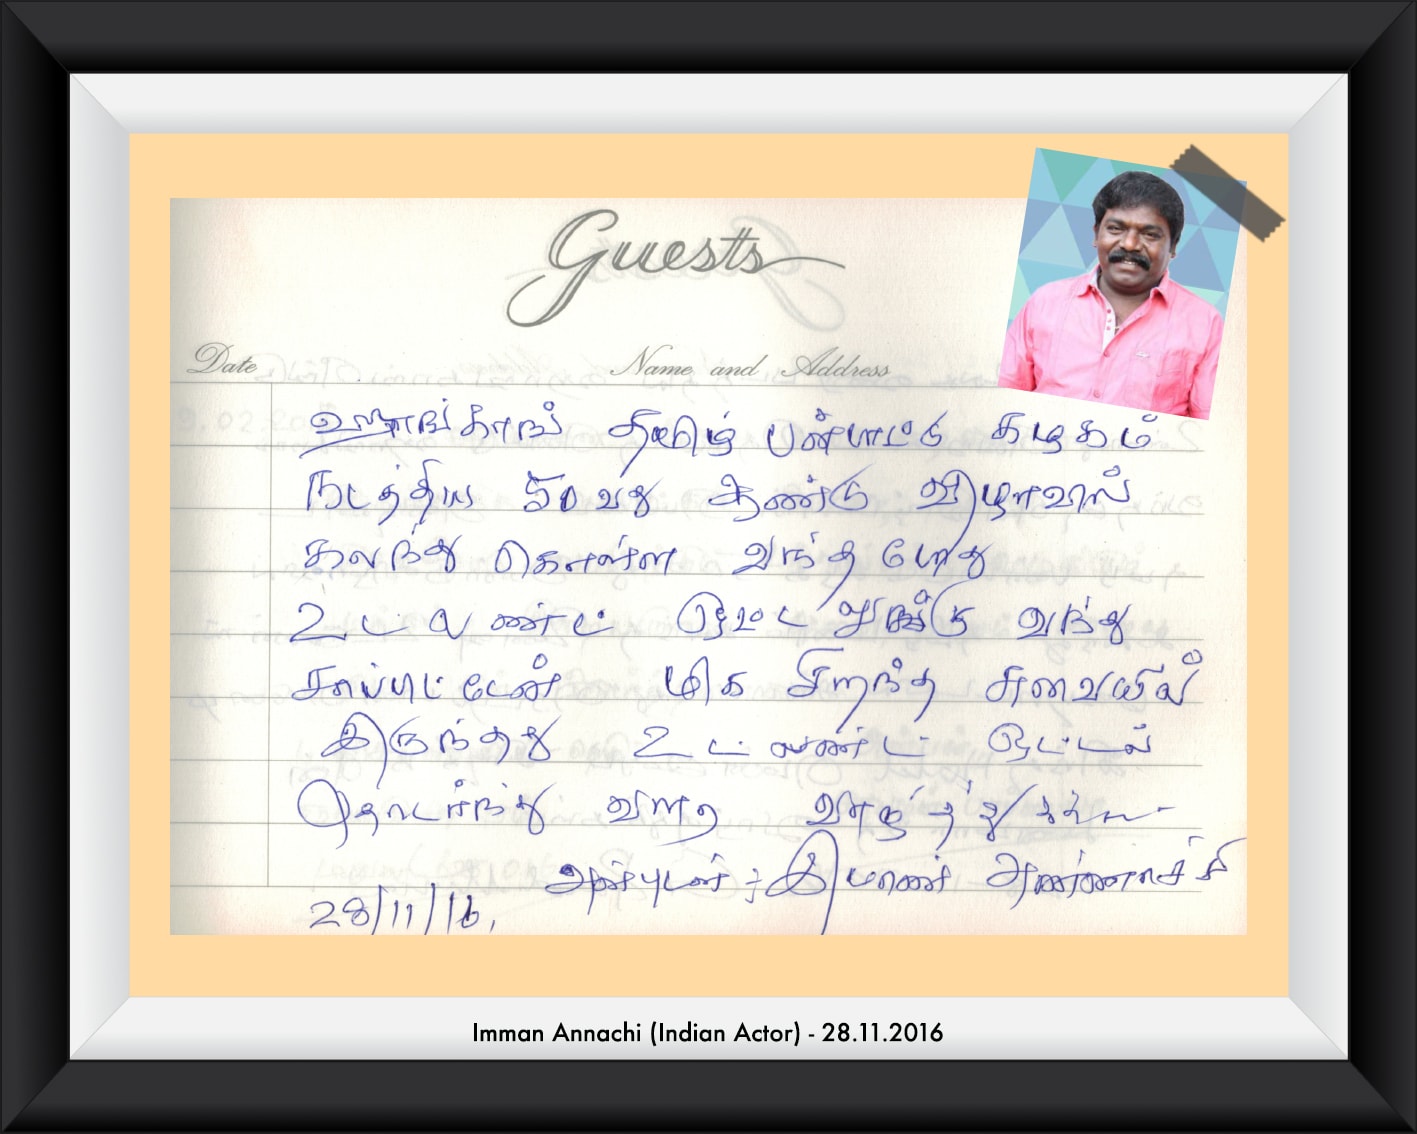 Guests
Date Name and Address
ஹாங்காங் தமிழ் பண்பாட்டு கழகம்
நடத்திய 50வது ஆண்டு விழாவில்
கலந்து கொள்ள வந்த போது
உட்லண்ட் ஓட்டலுக்கு வந்து
சாப்பிட்டேன் மிக சிறந்த சுவையில்
இருந்தது உட்லண்ட் ஓட்டல்
தொடர்ந்து வளர வாழ்த்துக்கள்
அன்புடன் இமான் அண்ணாச்சி
28/11/16.
Imman Annachi (Indian Actor) - 28.11.2016